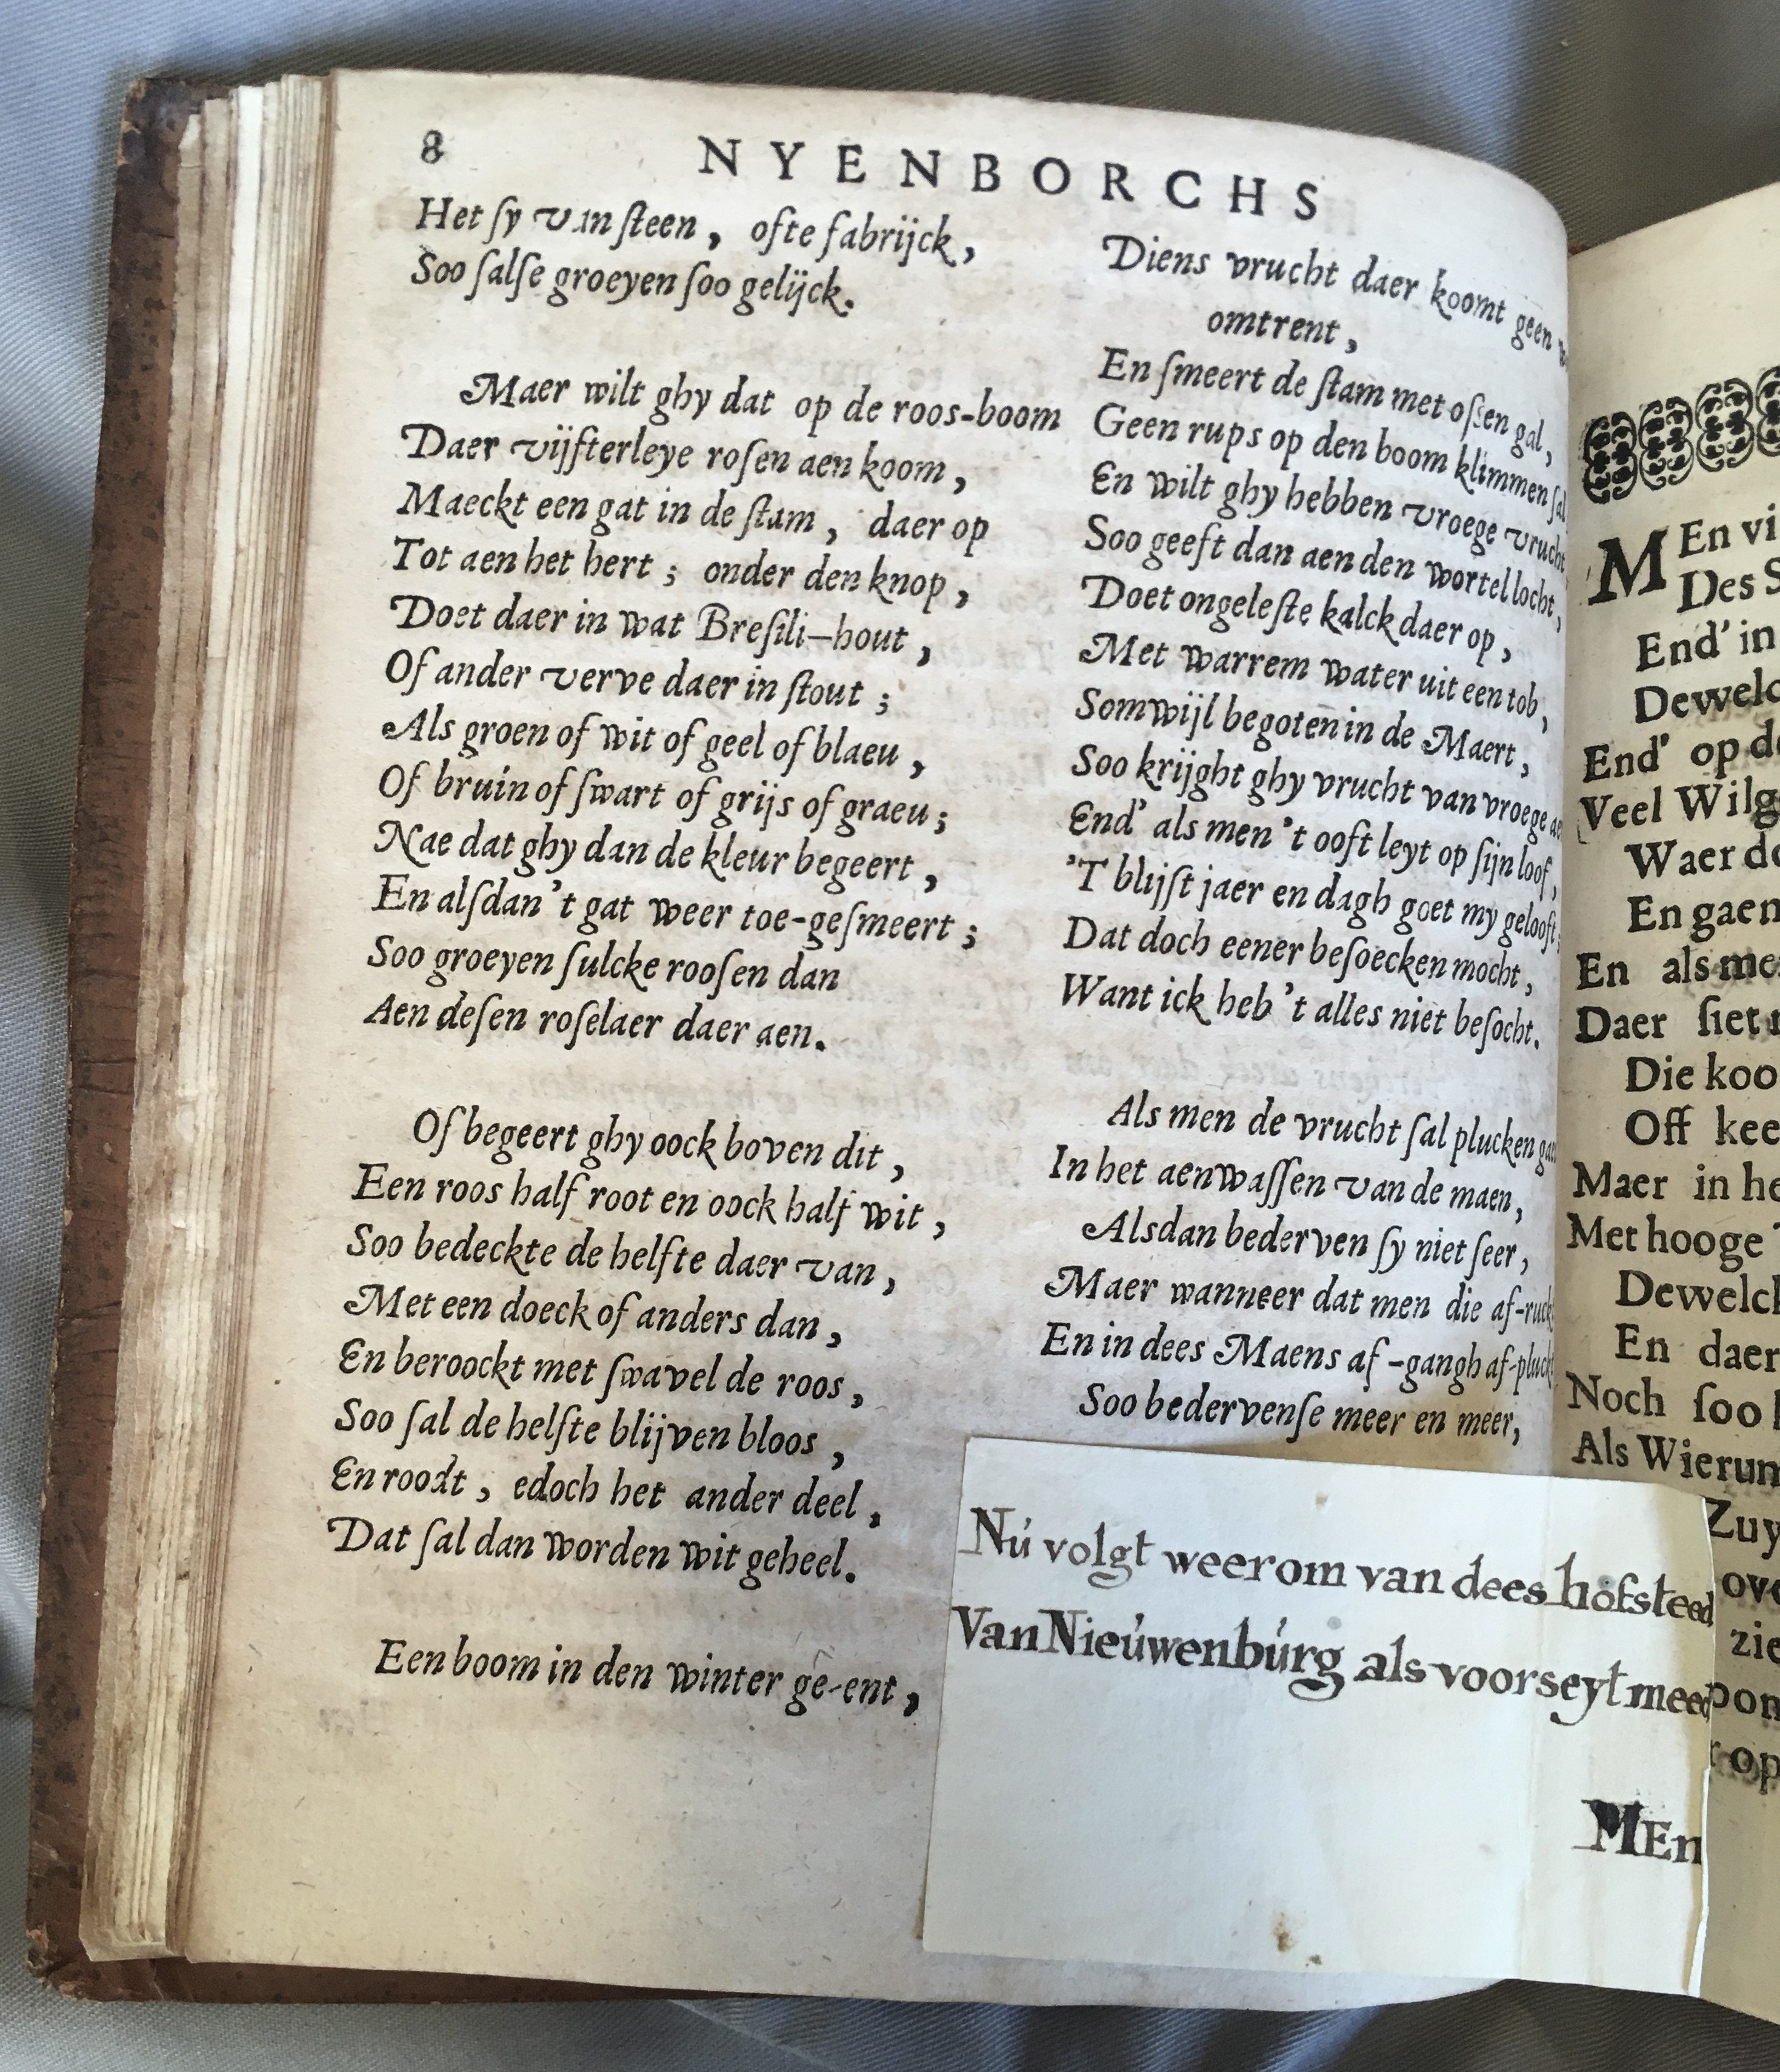 8
NYENBORCHS
Het ſy van ſteen, ofte fabrijck,
Soo ſalſe groeyen ſoo gelijck.
Maer wilt ghy dat op de roos-boom
Daer vijfterleye roſen aen koom,
Maeckt een gat in de ſtam, daer op
Tot aen het hert; onder den knop,
Doet daer in wat Breſili-hout,
Of ander verve daer in ſtout;
Als groen of wit of geel of blaeu,
Of bruin of ſwart of grijs of graeu;
Nae dat ghy dan de kleur begeert,
En alſdan't gat weer toe-geſmeert;
Soo groeyen ſulcke rooſen dan
Aen deſen roſelaer daer aen.
Of begeert ghy oock boven dit,
Een roos half root en oock half wit,
Soo bedeckte de helfte daer van,
Met een doeck of anders dan,
En beroockt met ſwavel de roos,
Soo ſal de helfte blijven bloos,
En roodt, edoch het ander deel,
Dat ſal dan worden wit geheel.
Een boom in den winter ge-ent,
Diens vrucht daer koomt geen
omtrent,
En ſmeert de ſtam met oſſen gal,
Geen rups op den boom klimmen ſal
En wilt ghy hebben vroege vrucht
Soo geeft dan aen den wortel locht,
Doet ongeleſte kalck daer op,
Met warrem water uit een tob,
Somwijl begoten in de Maert,
Soo krijght ghy vrucht van vroege
End' als men 't ooft leyt op ſijn loof,
'T blijft jaer en dagh goet my gelooft,
Dat doch eener beſoecken mocht,
Want ick heb 't alles niet beſocht.
Als men de vrucht ſal plucken
In het aenwaſſen van de maen,
Alsdan bederven ſy niet ſeer,
Maer wanneer dat men die af-ruckt
En in dees Maens af-gangh af-pluckt
Soo bedervenſe meer en meer,
Nú volgt weerom van dees hofsteed
Van Nieúwenbúrg als voorseyt meed
MEn
MEn
Des
End' in
End' op
Veel
Waer
En gaen
En als
Daer ſiet
Die
Off
Maer in
Met hooge
En daer
Noch ſoo
Als